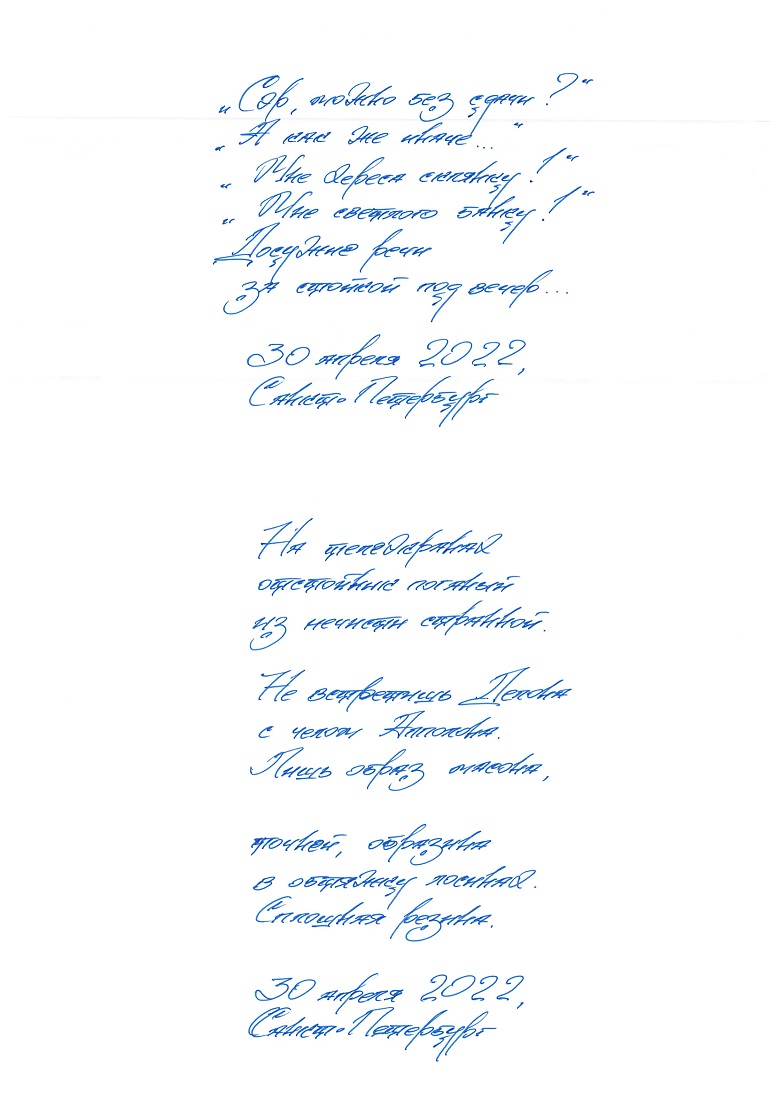 „Сэр, можно без сдачи?“
„А как же иначе...“
„Мне хереса склянку!“
„Мне светлого банку!“
Досужие речи
за стойкой под вечер...
30 апреля 2022,
Санкт-Петербург
На телеэкранах
отстойник поганый
из нечисти странной.
Не встретишь Делона
с челом Апполона.
Лишь образ масона,
точней, образина
в обтяжку лосинах.
Сплошная резина.
30 апреля 2022,
Санкт-Петербург